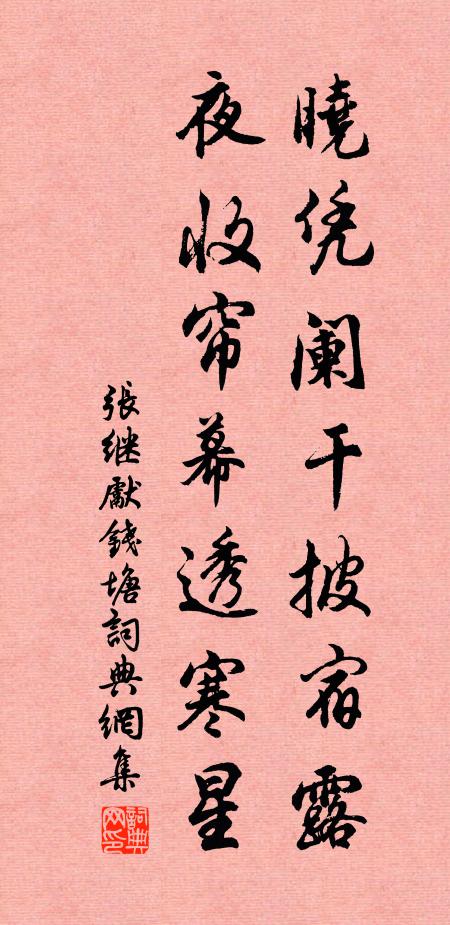 曉凭阑干披宿露
夜收帘幕透寒星
張继獻錢塘詞典網集
詞典
网印